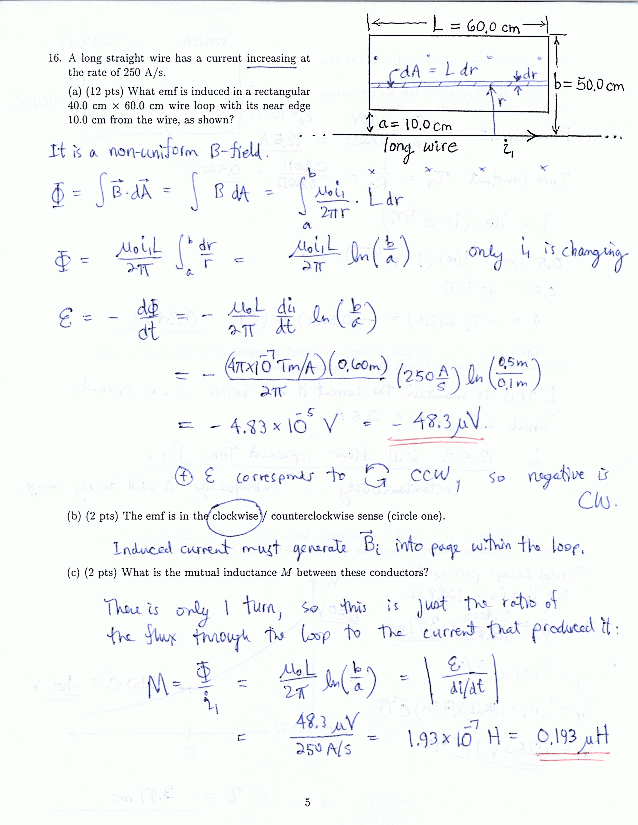 L = 60.0 cm
16. A long straight wire has a current increasing at
the rate of 250 A/s.
(a) (12 pts) What emf is induced in a rectangular
40.0 cm × 60.0 cm wire loop with its near edge
10.0 cm from the wire, as shown?
dA = L dr
dr
r
b = 50.0 cm
a = 10.0 cm
long wire i₁
It is a non-uniform B-field.
Φ = ∫ B⃗·dA⃗ = ∫ B dA = ∫ₐᵇ μ₀i₁/2πr · L dr
Φ = μ₀i₁L/2π ∫ₐᵇ dr/r = μ₀i₁L/2π ln(b/a) only i₁ is changing
ℰ = - dΦ/dt = - μ₀L/2π di₁/dt ln(b/a)
= - (4π×10⁻⁷ Tm/A)(0.60m)/2π (250 A/s) ln(0.5m/0.1m)
= - 4.83 × 10⁻⁵ V = - 48.3 μV.
(+) ℰ corresponds to CCW, so negative is
CW.
(b) (2 pts) The emf is in the clockwise / counterclockwise sense (circle one).
Induced current must generate B⃗ᵢ into page within the loop.
(c) (2 pts) What is the mutual inductance M between these conductors?
There is only 1 turn, so this is just the ratio of
the flux through the loop to the current that produced it:
M = Φ/i₁ = μ₀L/2π ln(b/a) = |ℰ/di/dt|
= 48.3 μV/250 A/s = 1.93 × 10⁻⁷ H = 0.193 μH
5